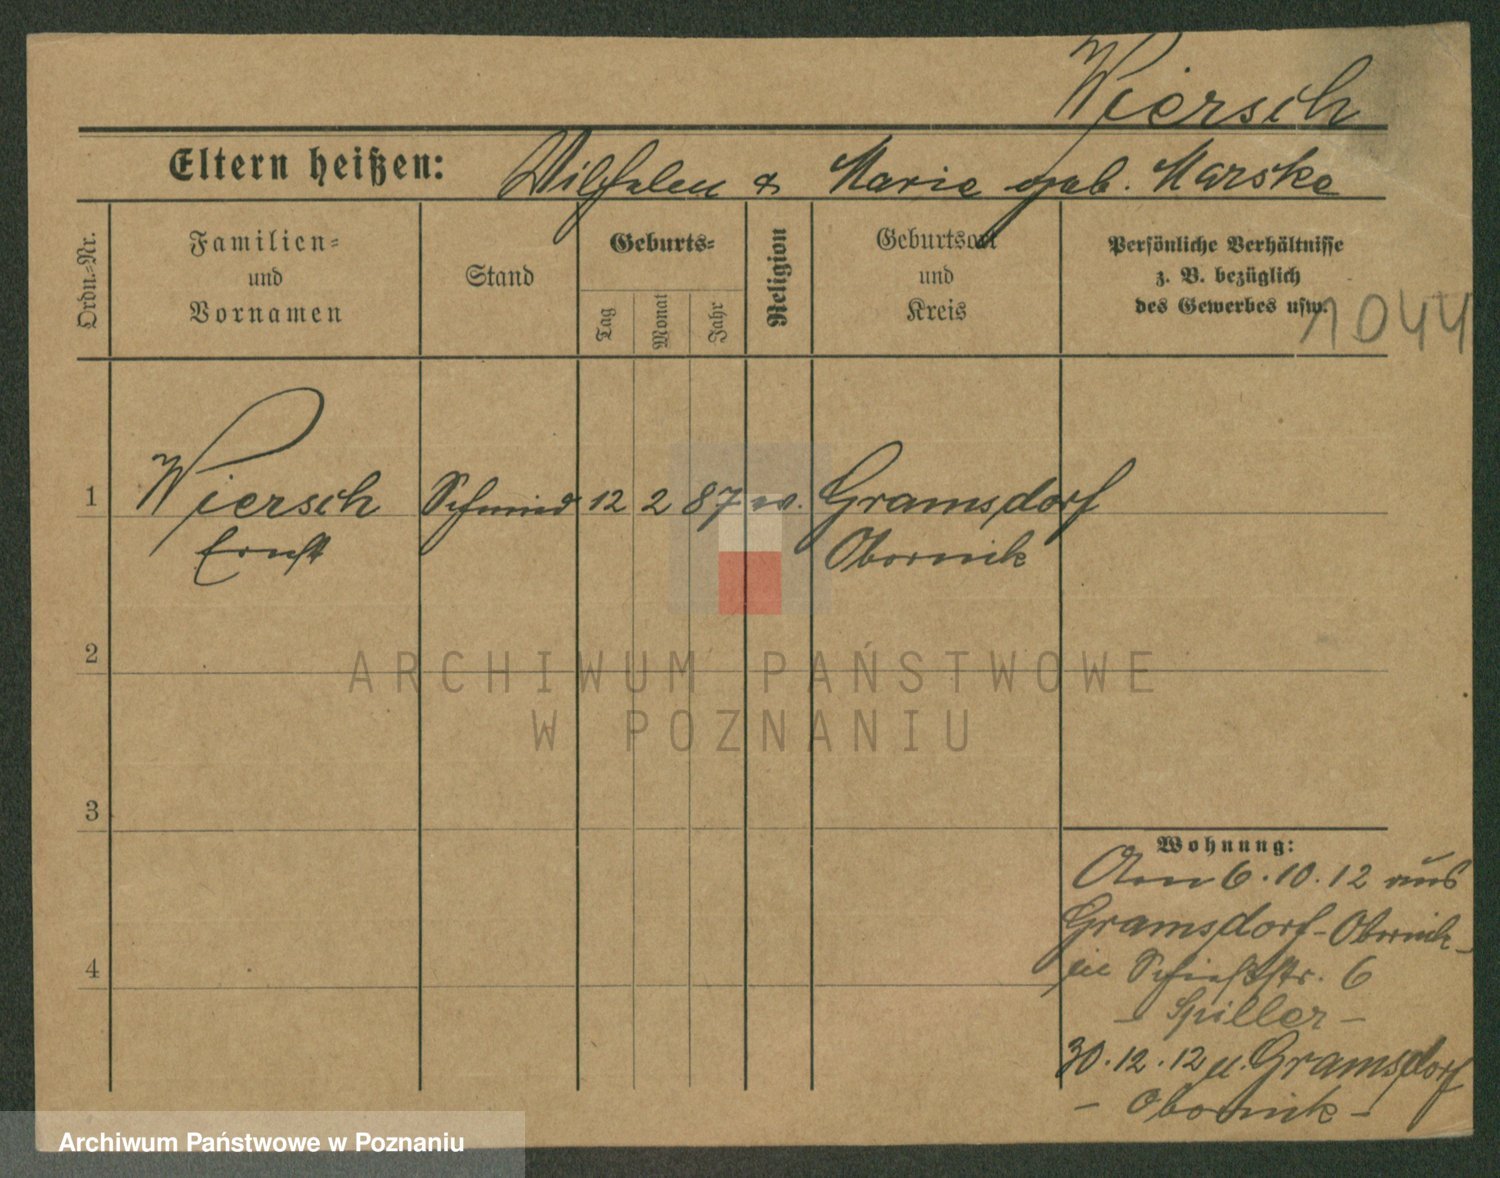 Wiersch
Eltern heißen: Wilhelm & Marie geb. Marske
Ordn.-Nr.
Familien-
und
Vornamen
Stand
Geburts-
Tag
Monat
Jahr
Religion
Geburtsort
und
Kreis
Persönliche Verhältnisse
z. B. bezüglich
des Gewerbes usw.
1044
1 Wiersch Schmied 12 2 87 ev. Gramsdorf
Ernst Obornik
2
ARCHIWUM PAŃSTWOWE
W POZNANIU
3
Wohnung:
Am 6.10.12 aus
Gramsdorf-Obornik
4
in Schießstr. 6
- Spiller -
30.12.12 n. Gramsdorf
- Obornik -
Archiwum Państwowe w Poznaniu